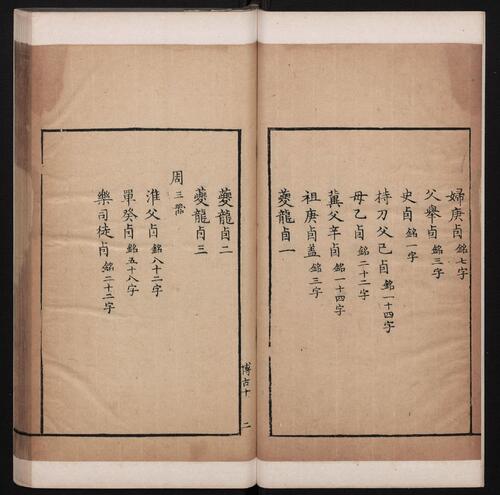 婦庚卣 銘七字
父舉卣 銘三字
史卣 銘一字
持刀父己卣 銘一十四字
母乙卣 銘二十二字
冀父辛卣 銘一十四字
祖庚卣蓋 銘三字
夔龍卣一
夔龍卣二
夔龍卣三
周 三器
淮父卣 銘八十二字
單癸卣 銘五十八字
樂司徒卣 銘二十二字
博古十 二